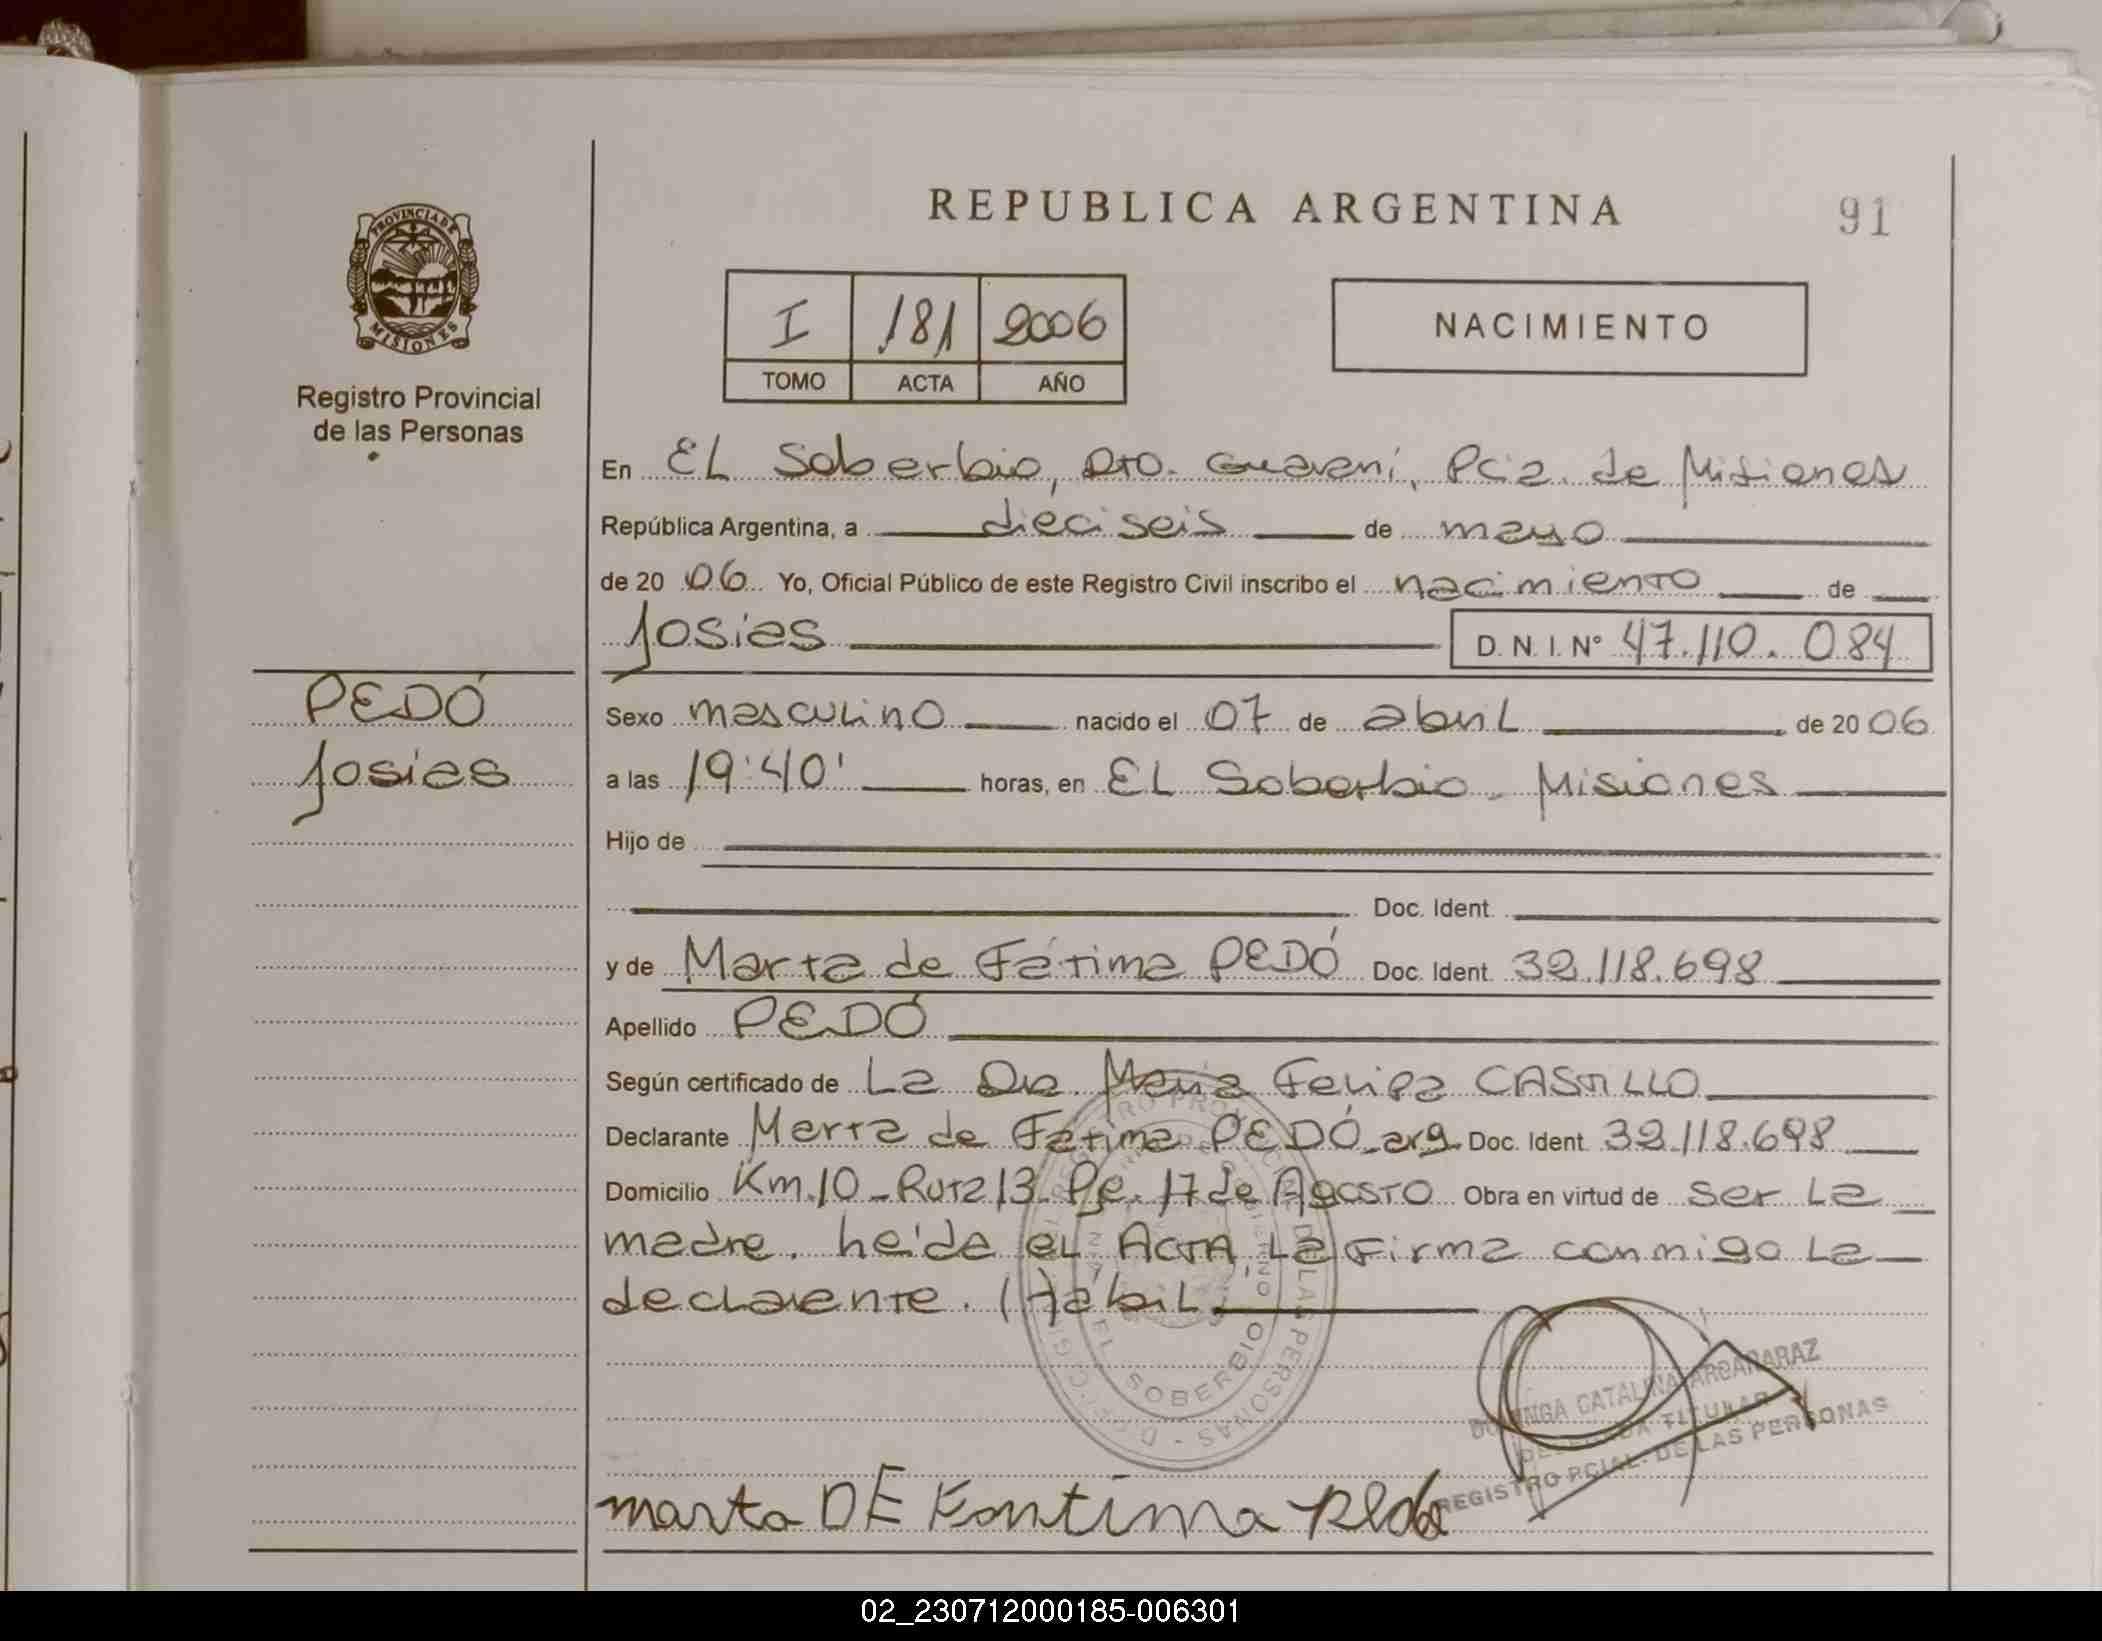 REPUBLICA ARGENTINA
91
PROVINCIA DE
MISIONES
Registro Provincial
de las Personas
I 181 2006
TOMO ACTA AÑO
NACIMIENTO
En EL Soberbio, Dto. Guaraní, Pcia. de Misiones
República Argentina, a dieciseis de mayo
de 20 06 Yo, Oficial Público de este Registro Civil inscribo el nacimiento de
Josias
D. N. I. N° 47.110.084
PEDÓ
Josias
Sexo masculino nacido el 07 de abril de 20 06
a las 19:40' horas, en EL Soberbio - Misiones
Hijo de
Doc. Ident.
y de Marta de Fátima PEDÓ Doc. Ident. 32.118.698
Apellido PEDÓ
Según certificado de La Dra. María Felipa CASTILLO
Declarante Marta de Fátima PEDÓ - arg. Doc. Ident. 32.118.698
Domicilio Km. 10 - Ruta 13 - Pje. 17 de Agosto Obra en virtud de ser La
madre. Leída el Acta, La firma conmigo La
declarante. (Hábil
REGISTRO PROVINCIAL DE LAS PERSONAS
EL SOBERBIO
DOMINGA CATALINA ARGARARAZ
DELEGADA TITULAR
REGISTRO PCIAL. DE LAS PERSONAS
marta DE Fantima Pedo
02_230712000185-006301